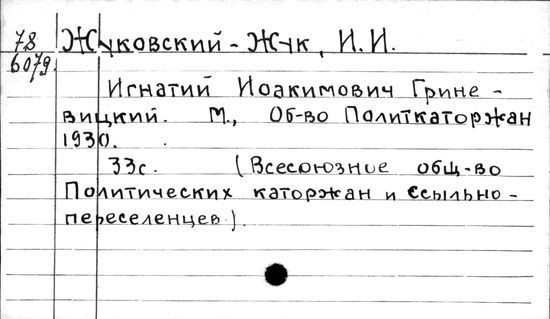 78 Жуковский-Жук, И.И.
6079.
Игнатий Иоакимович Грине-
вицкий. М., Об-во Политкаторжан
1930.
33с. (Всесоюзное общ-во
Политических каторжан и ссыльно-
переселенцев).